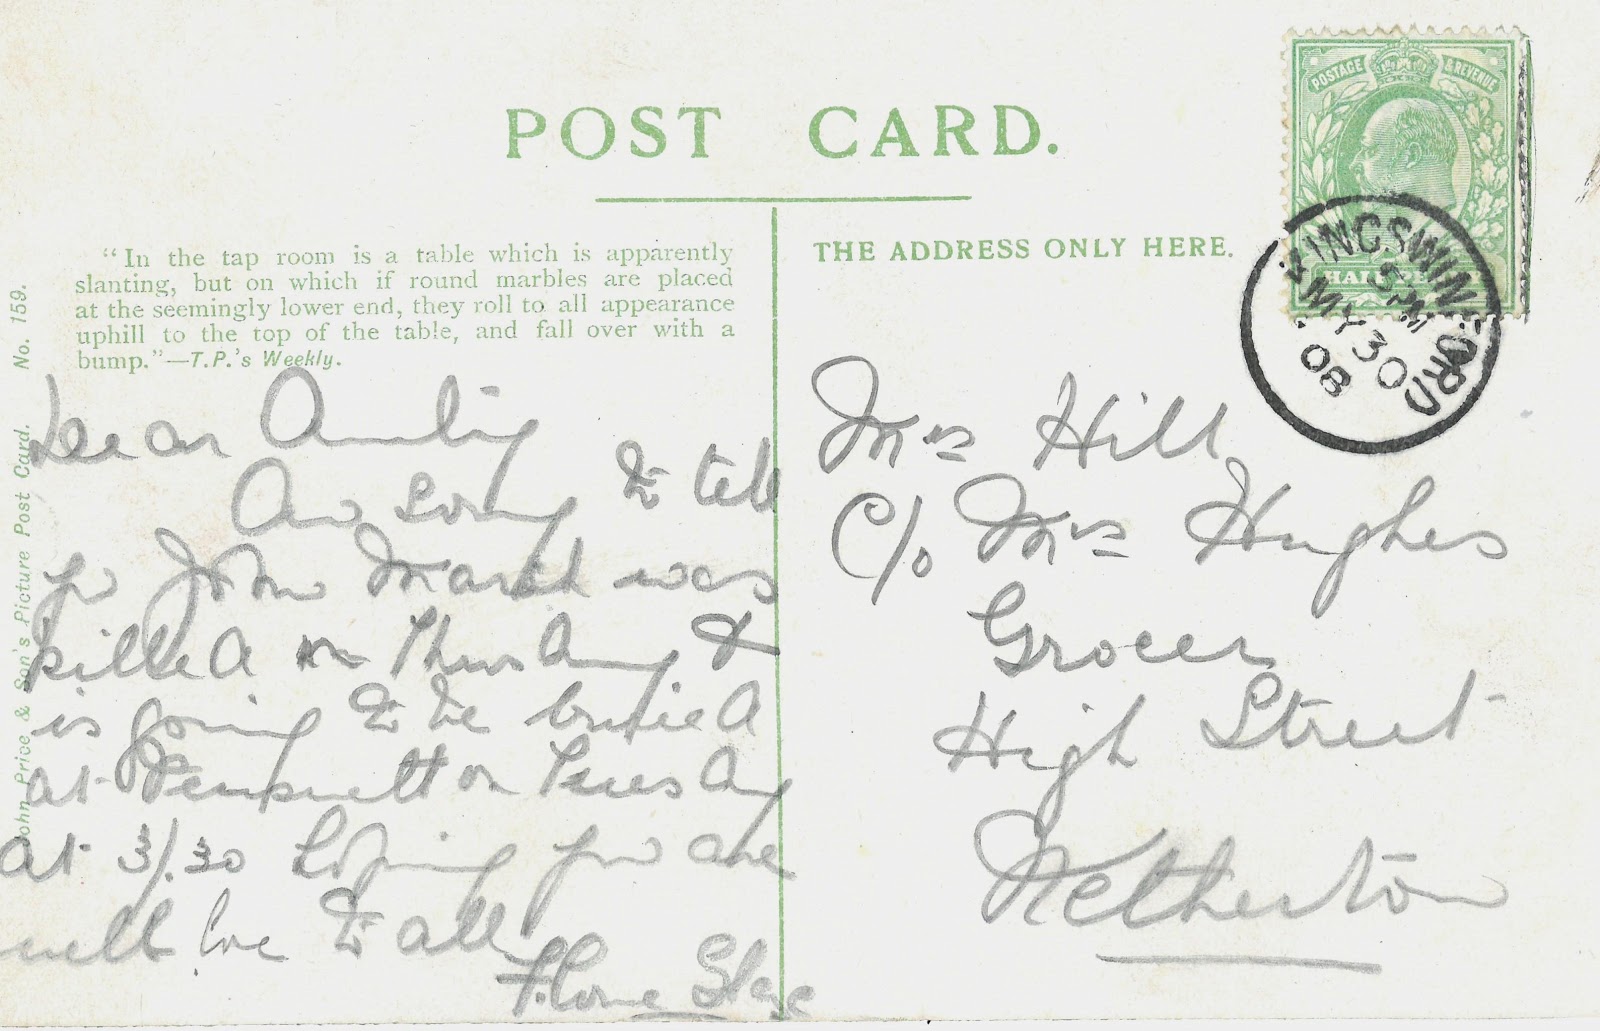 POST CARD.
"In the tap room is a table which is apparently
slanting, but on which if round marbles are placed
at the seemingly lower end, they roll to all appearance
uphill to the top of the table, and fall over with a
bump."—T.P.'s Weekly.
John Price & Son's Picture Post Card. No. 159.
Dear
Am sorry to tell
yu John Marsh was
killed on Thursday &
is going to be buried
at Pensnett on Tuesday
at 3/.30 hoping you are
well love to all
THE ADDRESS ONLY HERE.
POSTAGE & REVENUE
KINGSWINFORD
5 PM
MY 30
08
Mrs Hill
C/o Mrs Hughes
Grocer
High Street
Netherton